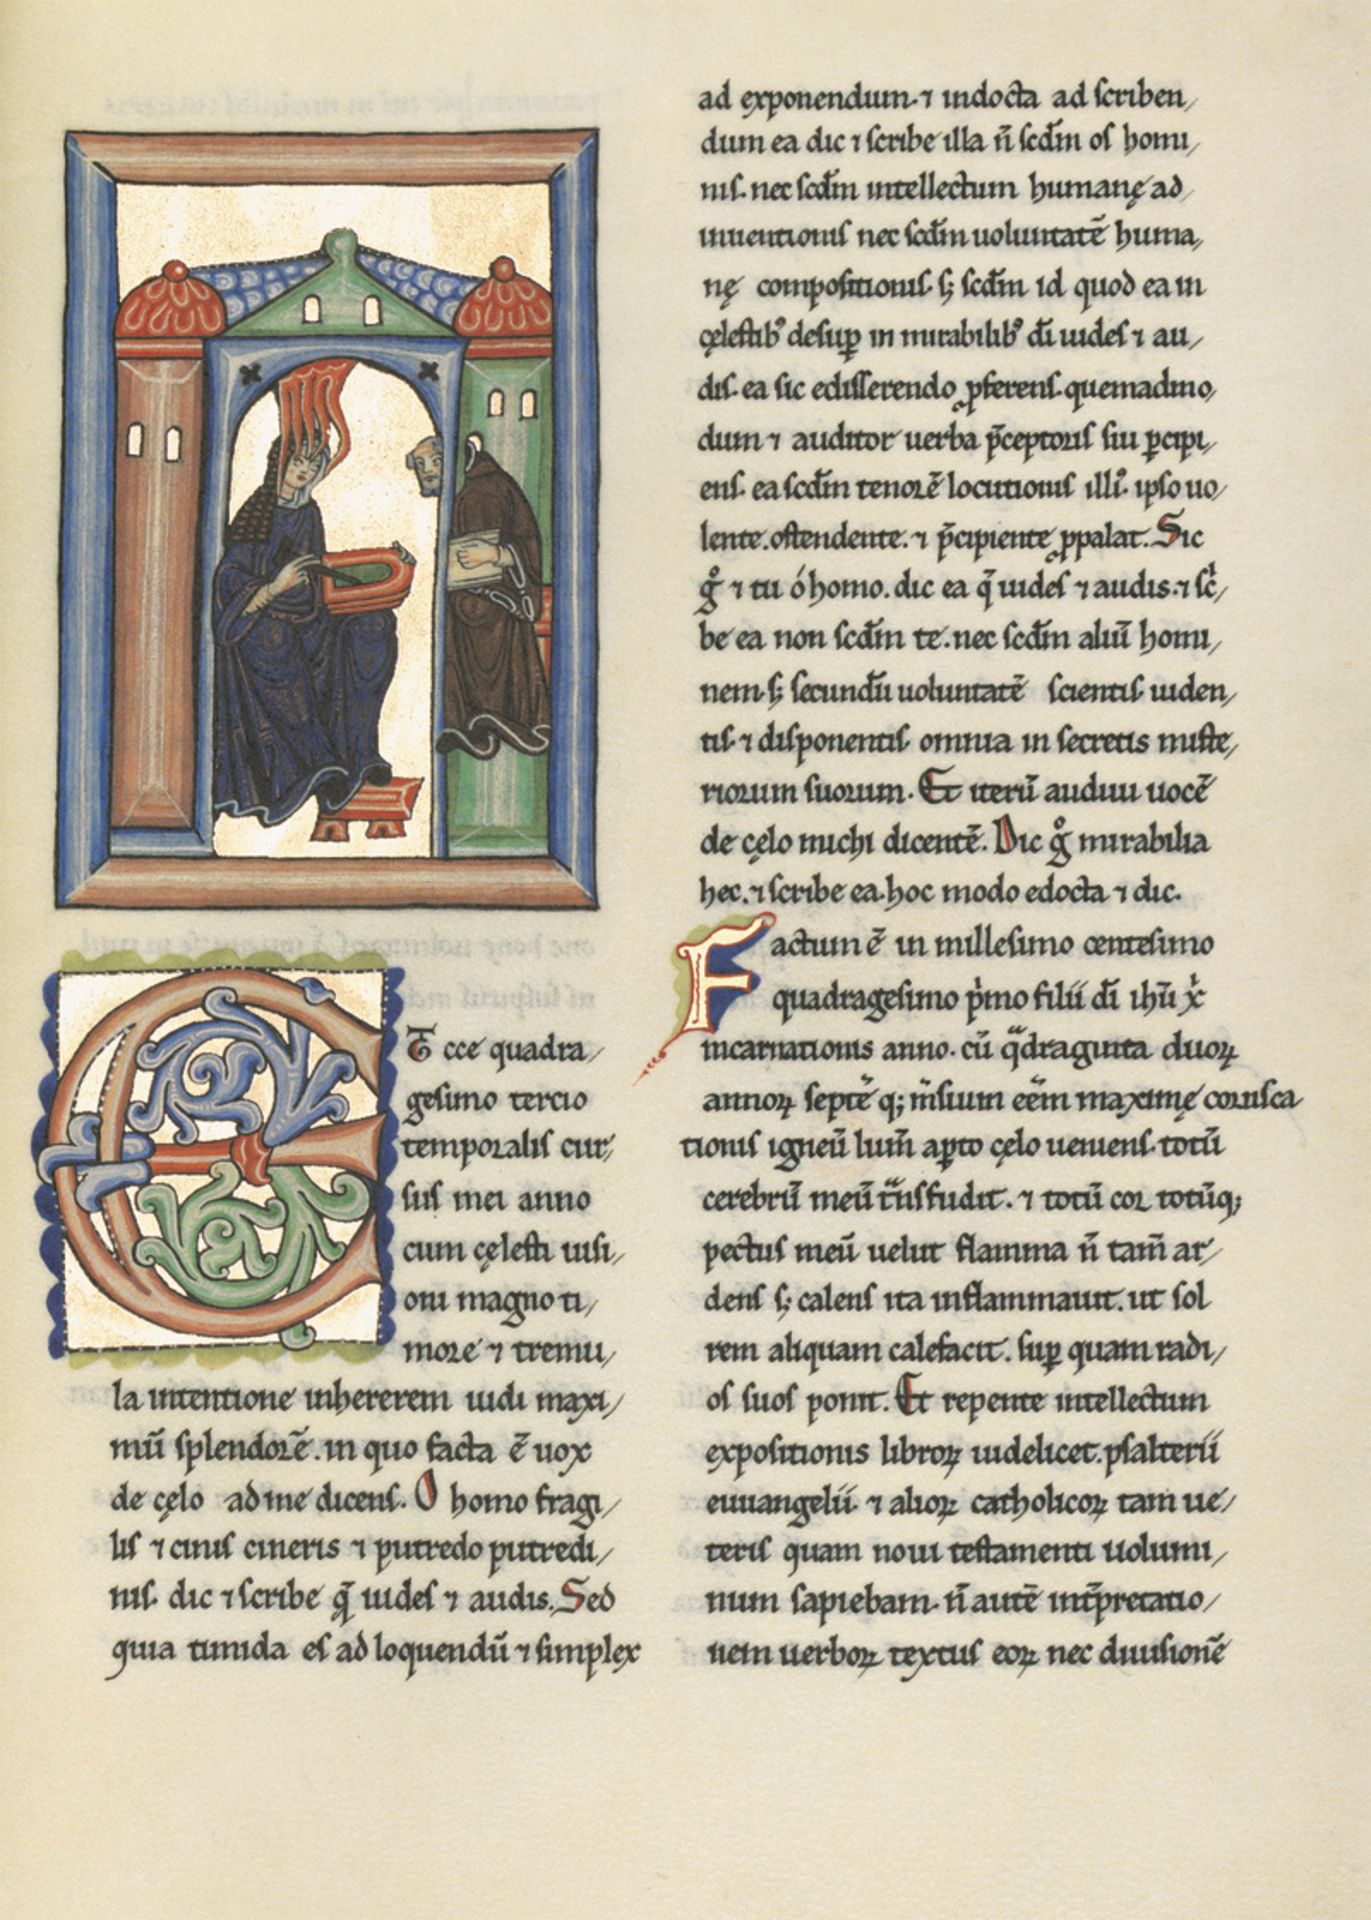 Et cce quadra/
gesimo tercio
temporalis cur/
sus mei anno
cum cęlesti uisi/
oni magno ti/
more ⁊ tremu/
la intentione inhererem uidi maxi/
mū splendorē. in quo facta ē uox
de cęlo ad me dicens. O homo fragi/
lis ⁊ cinis cineris ⁊ putredo putredi/
nis. dic ⁊ scribe q̄ uides ⁊ audis. Sed
quia timida es ad loquendū ⁊ simplex
ad exponendum. ⁊ indocta ad scriben/
dum ea dic ⁊ scribe illa n̄ scdm̄ os homi/
nis. nec scdm̄ intellectum humanę ad/
inuentionis nec scdm̄ uoluntatē huma/
nę compositionis. s; scdm̄ id quod ea in
cęlestib' desup̱ in mirabilib' di̅ uides ⁊ au/
dis. ea sic edisserendo ꝓferens. quemadmo/
dum ⁊ auditor uerba p̄ceptoris sui ꝑcipi/
ens. ea scdm̄ tenorē locutionis illi'. ipso uo/
lente. ostendente. ⁊ p̄cipiente ꝓpalat. Sic
gͦ ⁊ tu ó homo. dic ea q̄ uides ⁊ audis. ⁊ sc̍/
be ea non scdm̄ te. nec scdm̄ aliū homi/
nem. s; secundū uoluntatē scientis uiden/
tis. ⁊ disponentis omnia in secretis miste/
riorum suorum. Et iterū audiui uocē
de cęlo michi dicentē. Dic gͦ mirabilia
hec. ⁊ scribe ea. hoc modo edocta ⁊ dic.
Factum ē in millesimo centesimo
quadragesimo pͥmo filii di̅ ihū xͥ
incarnationis anno. cū qͣdraginta duoꝝ
annoꝝ septē q; m̄sium eēm maximę corusca
tionis igneū lum̄ aꝑto cęlo ueniens. totū
cerebrū meū tͣnsfudit. ⁊ totū cor totūq;
pectus meū uelut flamma n̄ tam̄ ar/
dens s; calens ita inflammauit. ut sol
rem aliquam calefacit. suꝑ quam radi/
os suos ponit. Et repente intellectum
expositionis libroꝝ uidelicet. psalterii
euuangelii. ⁊ alioꝝ catholicoꝝ tam ue/
teris quam noui testamenti uolumi/
num sapiebam. n̄ autē int̄pretatio/
nem uerboꝝ textus eoꝝ nec diuisionē